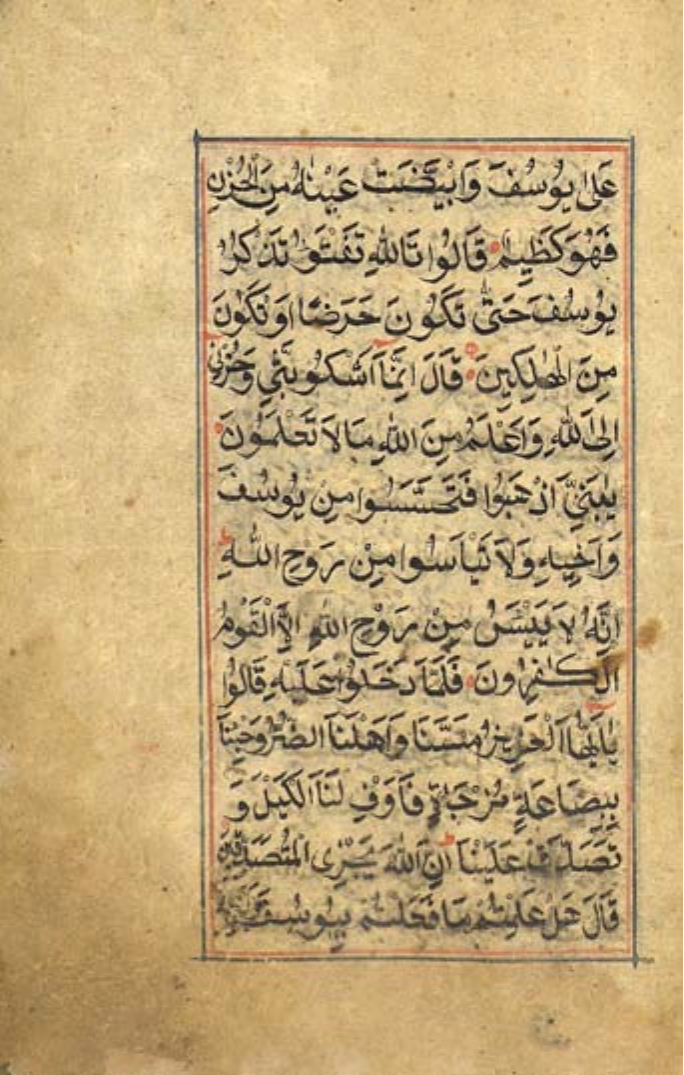 عَلىٰ يوُسُفَ وَابْيَضَّتْ عَيْنٰهُ مِنَ الْحُزْنِ
فَهُوَ كَظِيمٌ قَالُوا تَاللهِ تَفْتَؤُا تَذْكُرُ
يوُسُفَ حَتّٰى تَكُونَ حَرَضًا اَوْ تَكُونَ
مِنَ الْهٰلِكِينَ قَالَ اِنَّمَآ اَشْكُو بَثّٖي وَحُزْنٖي
اِلَى اللهِ وَاَعْلَمُ مِنَ اللهِ مَا لَا تَعْلَمُونَ
يٰبَنِيَّ اذْهَبُوا فَتَحَسَّسُوا مِنْ يوُسُفَ
وَاَخٖيهِ وَلَا تَيْاَسُوا مِنْ رَوْحِ اللهِ
اِنَّهُ لَا يَيْئَسُ مِنْ رَوْحِ اللهِ اِلَّا الْقَوْمُ
الْكٰفِرُونَ فَلَمَّا دَخَلُوا عَلَيْهِ قَالُوا
يٰاَيُّهَا الْعَزٖيزُ مَسَّنَا وَاَهْلَنَا الضُّرُّ وَجِئْنَا
بِبِضَاعَةٍ مُزْجٰىةٍ فَاَوْفِ لَنَا الْكَيْلَ وَ
تَصَدَّقْ عَلَيْنَا اِنَّ اللهَ يَجْزِى الْمُتَصَدِّقٖينَ
قَالَ هَلْ عَلِمْتُمْ مَا فَعَلْتُمْ بِيوُسُفَ